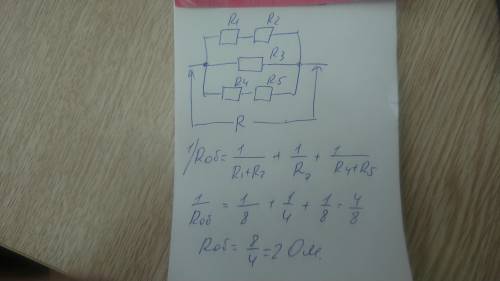 R1 R2
R3
R4 R5
R
1/Rоб = 1/(R1+R2) + 1/R3 + 1/(R4+R5)
1/Rоб = 1/8 + 1/4 + 1/8 = 4/8
Rоб = 8/4 = 2 Ом.